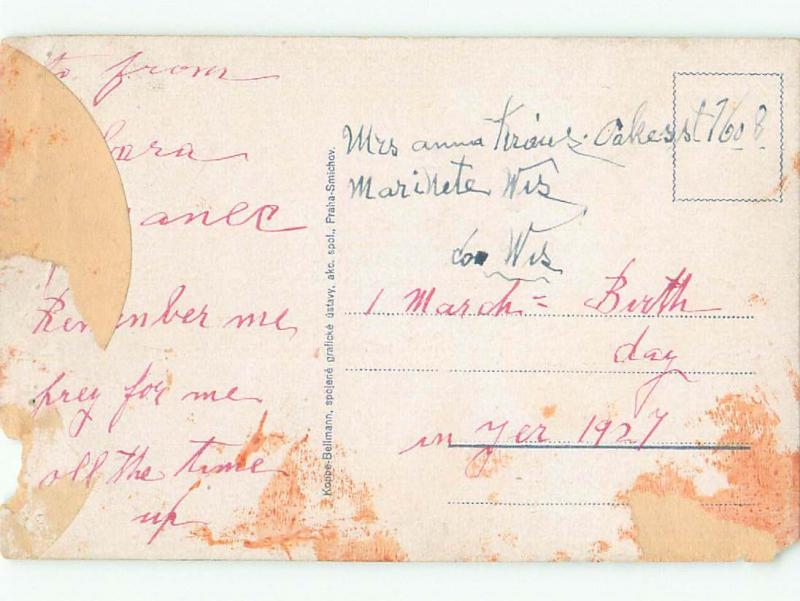 to from
bara
anec
Remember me
prey for me
all the time
up
Koppe-Bellmann, spojené grafické ústavy, akc. spol., Praha-Smíchov.
Mrs anna Kraus Oakes st 1608
Marinete Wis
Wis
1 March = Birth
day
in yer 1927